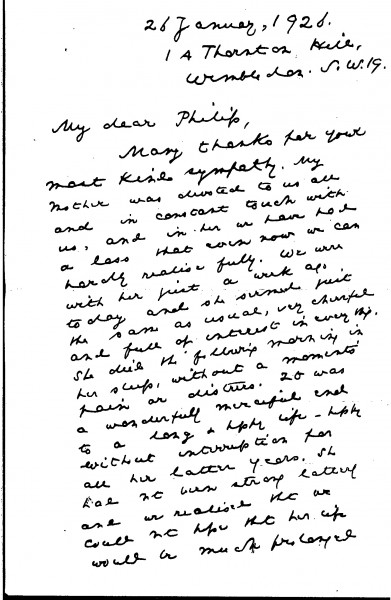 26 January, 1926.
1 A Thornton Hill,
Wimbledon. S.W.19.
My dear Philip,
Many thanks for your
most kind sympathy. My
Mother was devoted to us all
and in constant touch with
us, and in her we have had
a loss that even now we can
hardly realise fully. We were
with her just a week ago
today and she seemed just
the same as usual, very cheerful
and full of interest in everything.
She died the following morning in
her sleep, without a moments
pain or distress. It was
a wonderfully merciful end
to a long & happy life - happy
without interruption for
all her latter years. She
had not been strong lately
and we realised that we
could not hope that her life
would be much prolonged